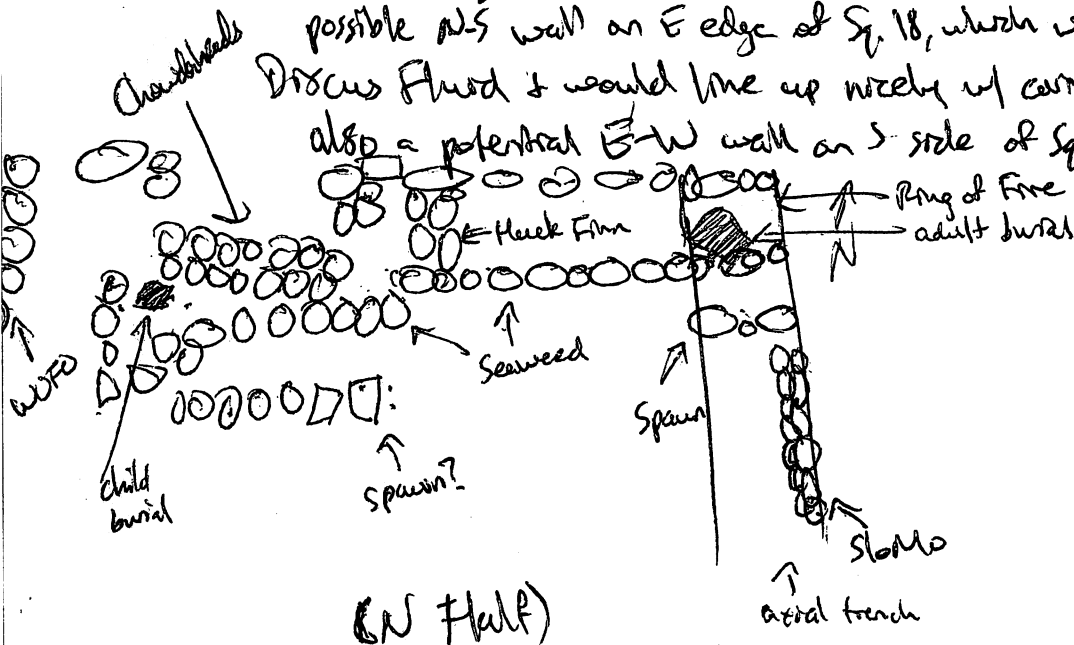 possible N-S wall on E edge of Sq. 18, which w
Discus Fluid & would line up nicely w/
also a potential E-W wall on S side of Sq
Chowderheads
Ring of Fire
adult burial
Huck Finn
N
WOFO
Seaweed
Spawn
child
burial
Spawn?
SloMo
axial trench
(N Half)